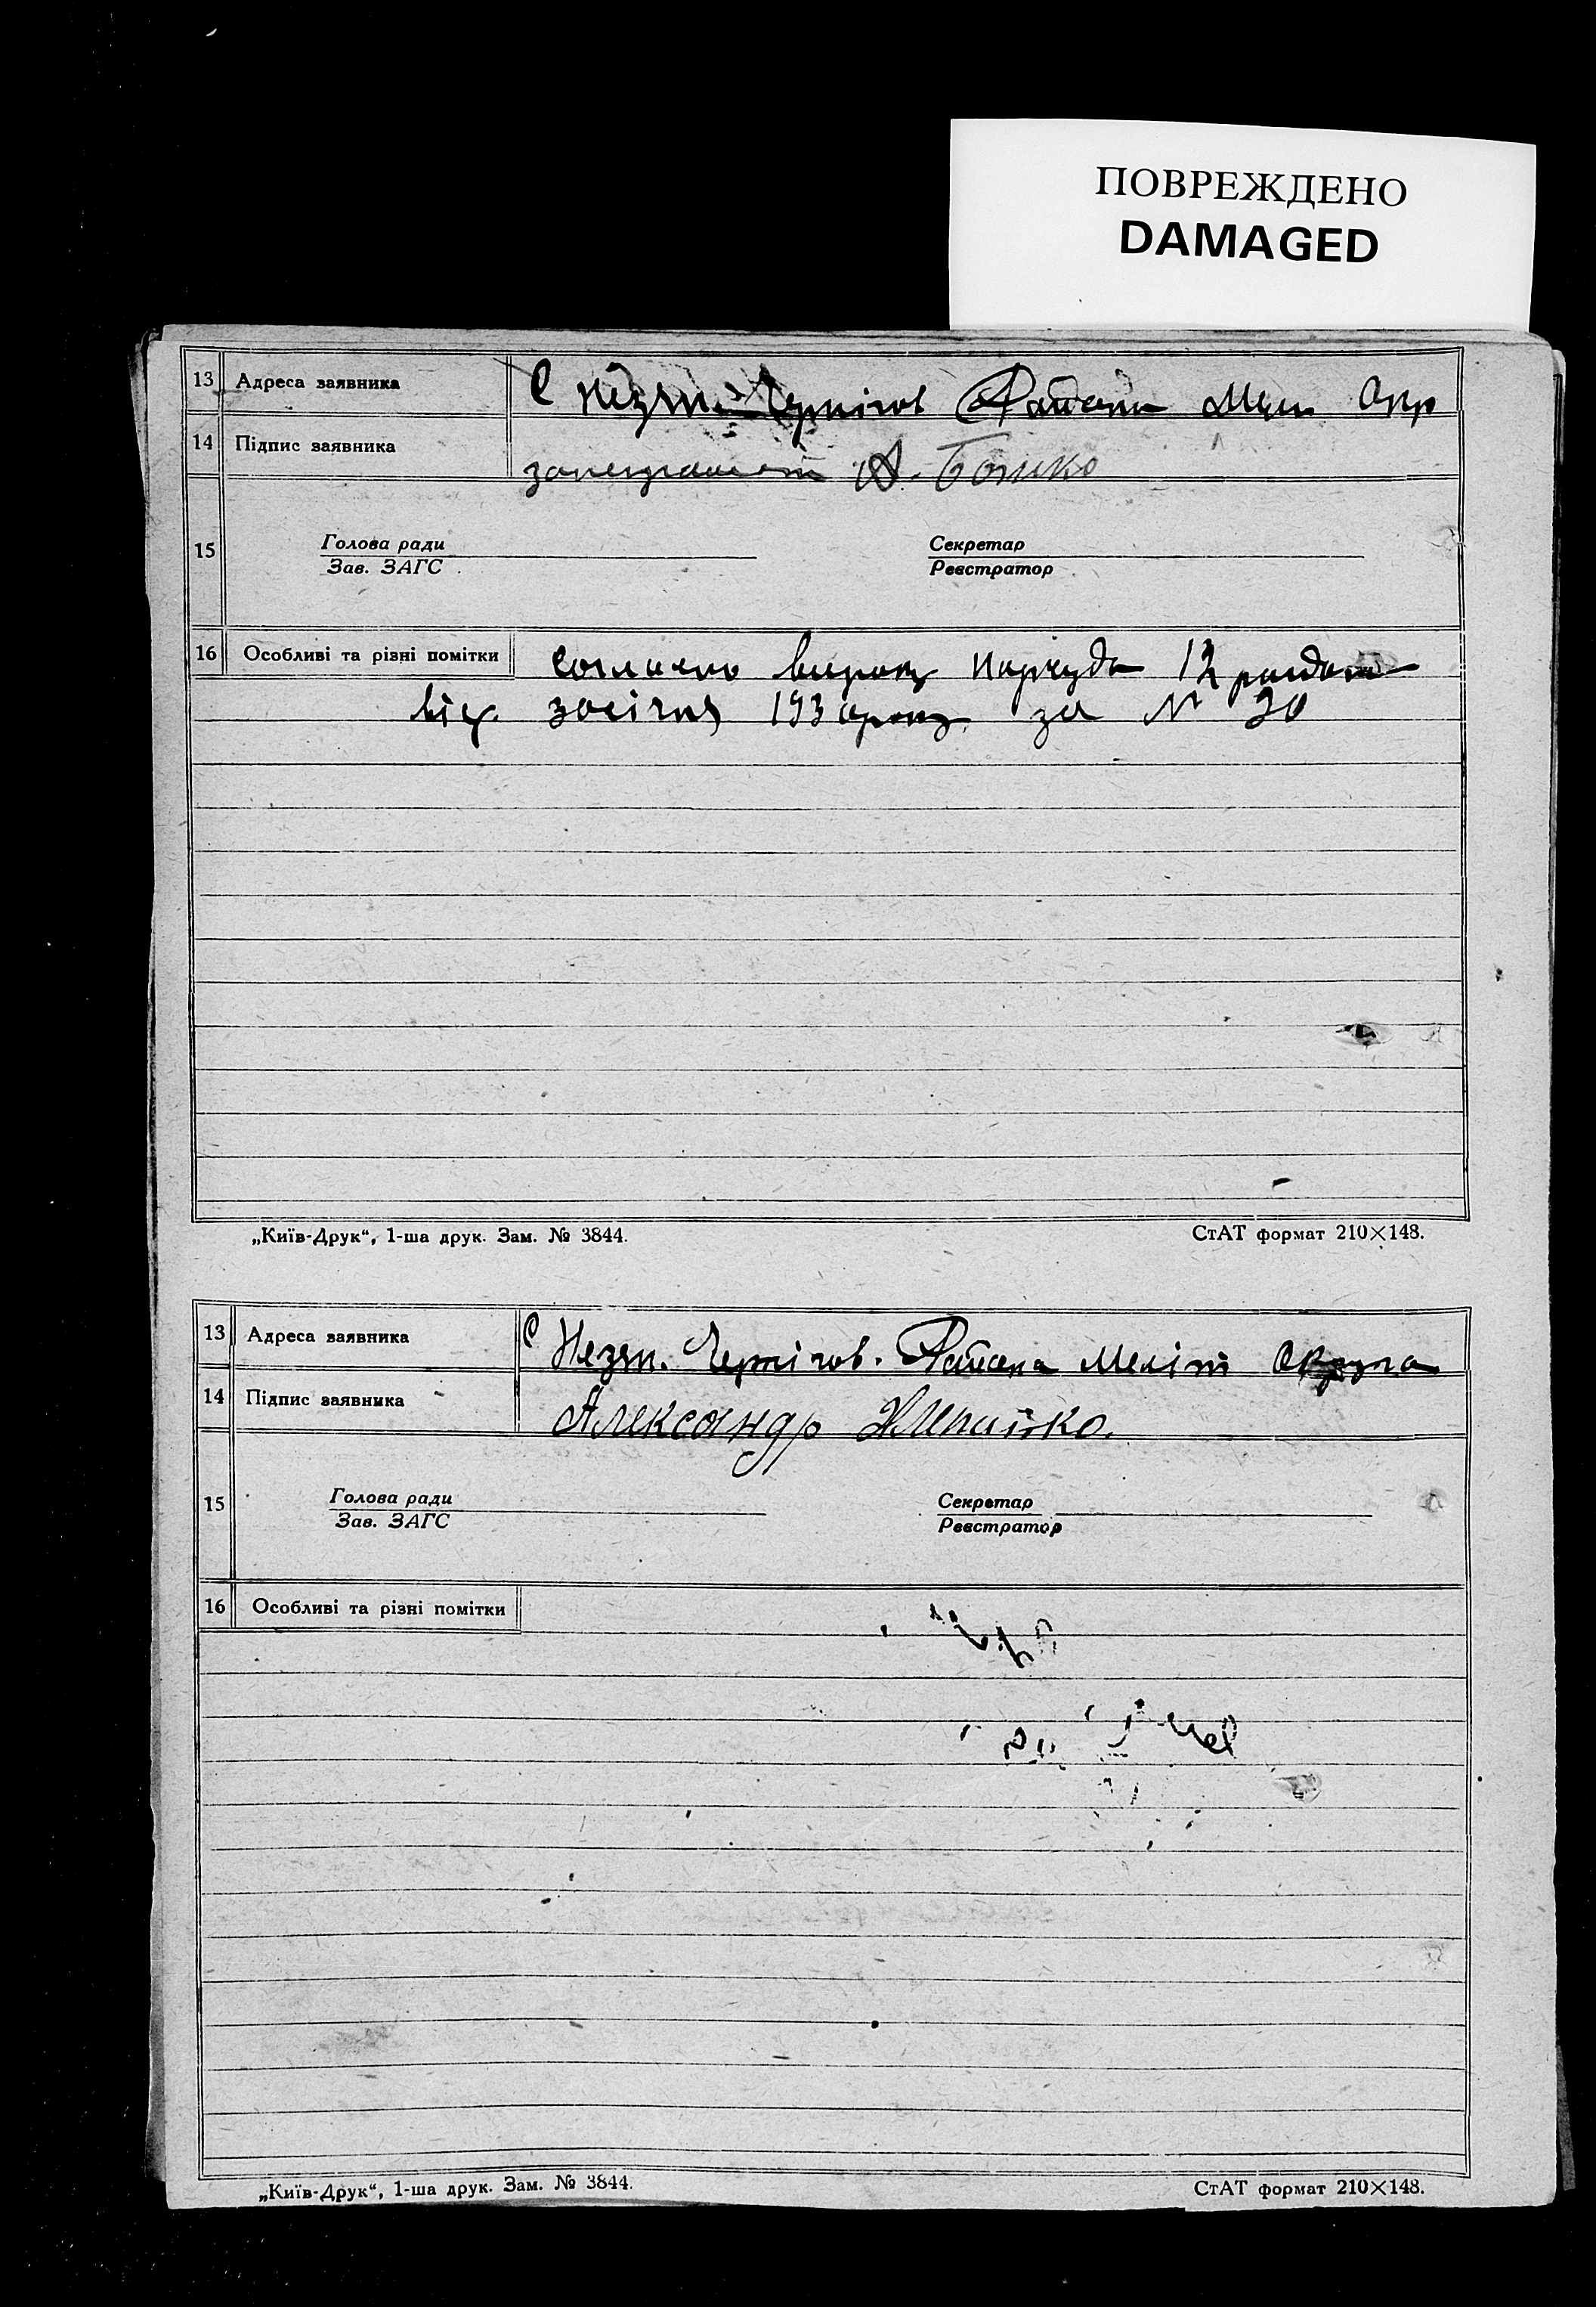 ПОВРЕЖДЕНО
DAMAGED
13 Адреса заявника С Чернігов Району Окр
14 Підпис заявника А. Бойко
15 Голова ради Секретар
Зав. ЗАГС Реєстратор
16 Особливі та різні помітки согласно вироку Нарсуда 12
від 30 січня 193 року за № 30
„Київ-Друк“, 1-ша друк. Зам. № 3844. СтАТ формат 210×148.
13 Адреса заявника С Чернігов. Района Меліт Округа
14 Підпис заявника Александр
15 Голова ради Секретар
Зав. ЗАГС Реєстратор
16 Особливі та різні помітки
„Київ-Друк“, 1-ша друк. Зам. № 3844. СтАТ формат 210×148.